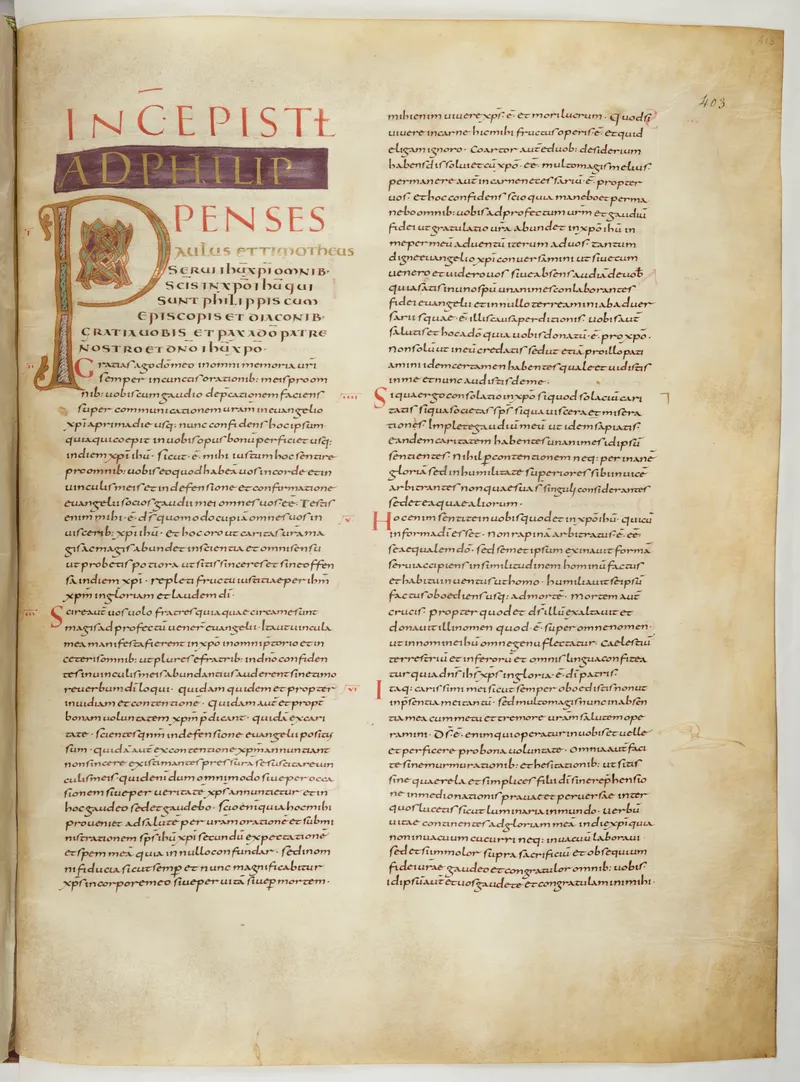 403
INC̄ EPISTL
AD PHILIP
PENSES
Paulus et timotheus
serui ihū xp̄i omnib·
sc̄is in xp̄o ihū qui
sunt philippis cum
episcopis et diaconib·
gratia uobis et pax a dō patre
nostro et dn̄o ihū xp̄o·
Gratias ago dō meo in omni memoria ur̄i
semper in cunctis orationib: meis pro om
nib: uobis cum gaudio depcationem faciens
super communicatione ur̄am in euangelio
xp̄i a prima die usq: nunc confidens hoc ipsum
quia qui coepit in uobis opus bonū perficiet usq:
in diem xp̄i ihū· sicut·ē· mihi iustum hoc sentire
pro omnib: uobis eo quod habeā uos in corde et in
uinculis meis et in defensione et confirmatione
euangelii socios gaudii mei omnes uos eē· Testis
enim mihi·ē·dī quomodo cupiā omnes uos in
uisceribˌ xp̄i ihū· et hoc oro ut caritas ur̄a ma
gis ac magis abundet in scientia et omni sensū
ut probetis potiora ut sitis sinceres et sine offen
sā in diem xp̄i· repleti fructu iustitiae per ihm̄
xpm̄ in gloriam et laudem dī·
Scire aūt uos uolo fratres quia quae circa me sunt
magis ad profectū uener̄ euangelii· Ita ut uincula
mea manifesta fierent in xp̄o in omni p̄torio et in
ceteris omnib: ut plures e fratrib: in dn̄o confiden
tes in uinculis meis abundantius auderent sine timo
re uerbum dī loqui· quidam quidem et propter
inuidiam et contentionē· quidam aūt et propt̄
bonam uoluntatem xpm̄ p̄dicant· quidā ex cari
tate· scientes qnm̄ in defensione euangelii positus
sum· quidā aūt ex contentione xpm̄ annuntiant
non sincere existimantes pressurā se suscitare uin
culis meis· quid enim dum omni modo siue per occa
sionem siue per ueritatē xp̄s annuntietur et in
hoc gaudeo sed et gaudebo· scio enī quia hoc mihi
proueniet ad salutē per ur̄am orationē et submi
nistrationem sp̄s ihū xp̄i secundū expectationē
et spem meā quia in nullo confundar· sed in om
ni fiducia sicut semp̄ et nunc magnificabitur
xp̄s in corpore meo siue per uitā siue p̄ mortem·
mihi enim uiuere xp̄s·ē·et mori lucrum· Quod si
uiuere in carne hic mihi fructus operis·ē·et quid
eligam ignoro· Coartor aūt e duob: desiderium
habens dissolui et cū xp̄o·eē·multo magis melius·
permanere aūt in carne necessariū·ē·propter
uos· et hoc confidens scio quia manebo et perma
nebo omnib: uobis ad profectum ur̄m et gaudiū
fidei ut gratulatio ur̄a abundet in xp̄o ihū in
me per meū aduentū iterum ad uos· tantum
digne euangelio xp̄i conuersamini ut siue cum
uenero et uidero uos siue absens audiā de uob
quia statis in uno sp̄ū unanimes conlaborantes
fidei euangelii et in nullo terreamini ab aduer
sariis quae·ē·illis causa perditionis· uobis aūt
salutis et hoc a dō quia uobis donatū·ē·pro xp̄o·
non solū ut in eū credatis sed ut etiā pro illo pati
amini idem certamen habentes quale et uidistis
in me et nunc audistis de me·
Si qua ergo consolatio in xp̄o si quod solaciū cari
tatis si qua societas sp̄s si qua uiscera et misera
tiones· Implete gaudiū meū ut idem sapiatis·
eandem caritatem habentes unanimes id ipsū
sentientes· nihil p̄ contentionem neq: per inanē
gloriā sed in humilitate superiores sibi inuicē
arbitrantes non quae sua s̄ singuli considerantes
sed et ea quae aliorum·
Hoc enim sentite in uobis quod et in xp̄o ihū· qui cū
in forma dī esset· non rapinā arbitratus·ē·eē·
se aequalem dō· sed semet ipsum exinauit formā
serui accipiens in similitudinem hominū factus
et habitu inuentus ut homo· humiliauit se ipsū
factus oboediens usq: ad mortē· mortem aūt
crucis· propter quod et dī illū exaltauit et
donauit illi nomen quod·ē·super omne nomen·
ut in nomine ihū omne genu flectatur· caelestiū
terrestriū et inferorū et omnis lingua confitea
tur quia dn̄s ihs̄ xp̄s in gloria·ē·dī patris·
Itaq: carissimi mei sicut semper oboedistis non ut
in p̄sentia mei tantū· sed multo magis nunc in absen
tia mea cum metu et tremore ur̄am salutem ope
ramini· Dī·ē·enim qui operatur in uobis et uelle
et perficere pro bona uoluntate· omnia aūt faci
te sine murmurationib: et hesitationib: ut sitis
sine quaerela et simplices filii dī sine reprehensio
ne in medio nationis prauae et peruersae inter
quos lucetis sicut luminaria in mundo· uerbū
uitae continentes ad gloriam meā in die xp̄i quia
non in uacuum cucurri neq: in uacuū laboraui·
sed et si immolor supra sacrificiū et obsequium
fidei ur̄ae gaudeo et congratulor omnib: uobis·
id ipsū aūt et uos gaudete et congratulamini mihi·